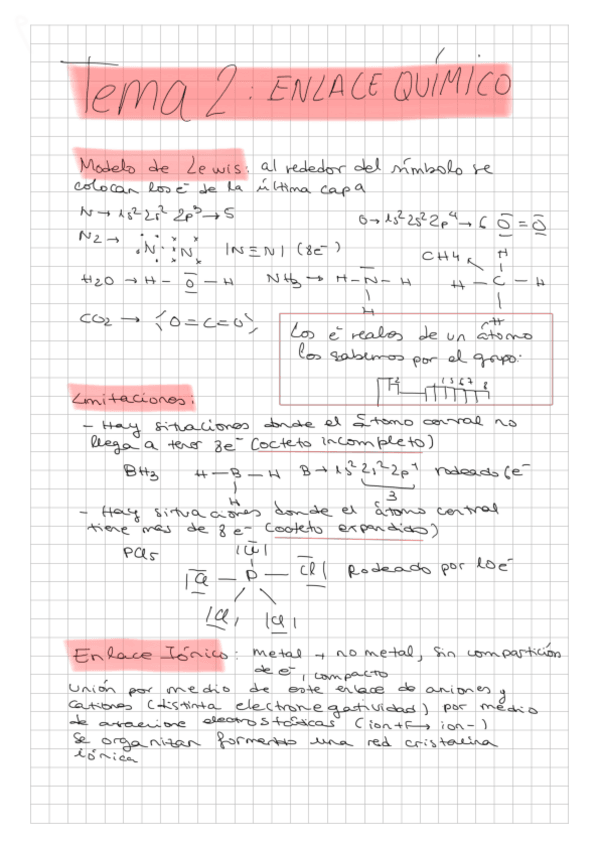 Tema 2: ENLACE QUÍMICO
Modelo de Lewis: al rededor del símbolo se
colocan los e⁻ de la última capa
N → 1s² 2s² 2p³ → 5
O → 1s² 2s² 2p⁴ → 6 O = O
N2 → N N |N≡N| (8e⁻)
CH4
H
H2O → H - O - H
NH3 → H - N - H
H
H - C - H
H
CO2 → O = C = O
Los e⁻ reales de un átomo
los sabemos por el grupo:
2 3 5 6 7 8
Limitaciones:
- Hay situaciones donde el átomo central no
llega a tener 8e⁻ (octeto incompleto)
BH3 H - B - H B → 1s² 2s² 2p¹ rodeado 6e⁻
H
3
- Hay situaciones donde el átomo central
tiene más de 8 e⁻ (octeto expandido)
PCl5
|Cl|
|Cl - P - Cl| Rodeado por 10e⁻
|Cl| |Cl|
Enlace Iónico: metal + no metal, sin compartición
de e⁻, compacto
Unión por medio de este enlace de aniones y
cationes (distinta electronegatividad) por medio
de electrostáticas (ion+ ↔ ion-)
Se organizan formando una red cristalina
iónica